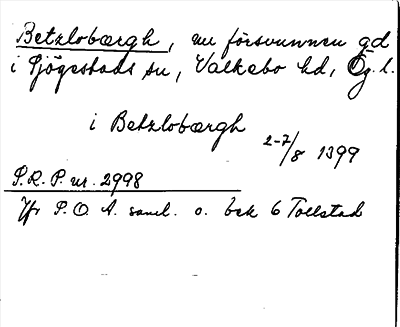 Betzlobærgh, nu försvunnen gd
i Sjögestads sn, Valkebo hd, Ög. l.
i Betzlobærgh
2-7/8 1399
P.R.P. nr. 2998
Jfr P.O.A. saml. o. bek 6 Tollstad